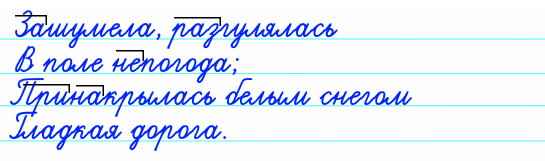 Зашумела, разгулялась
В поле непогода;
Принакрылась белым снегом
Гладкая дорога.